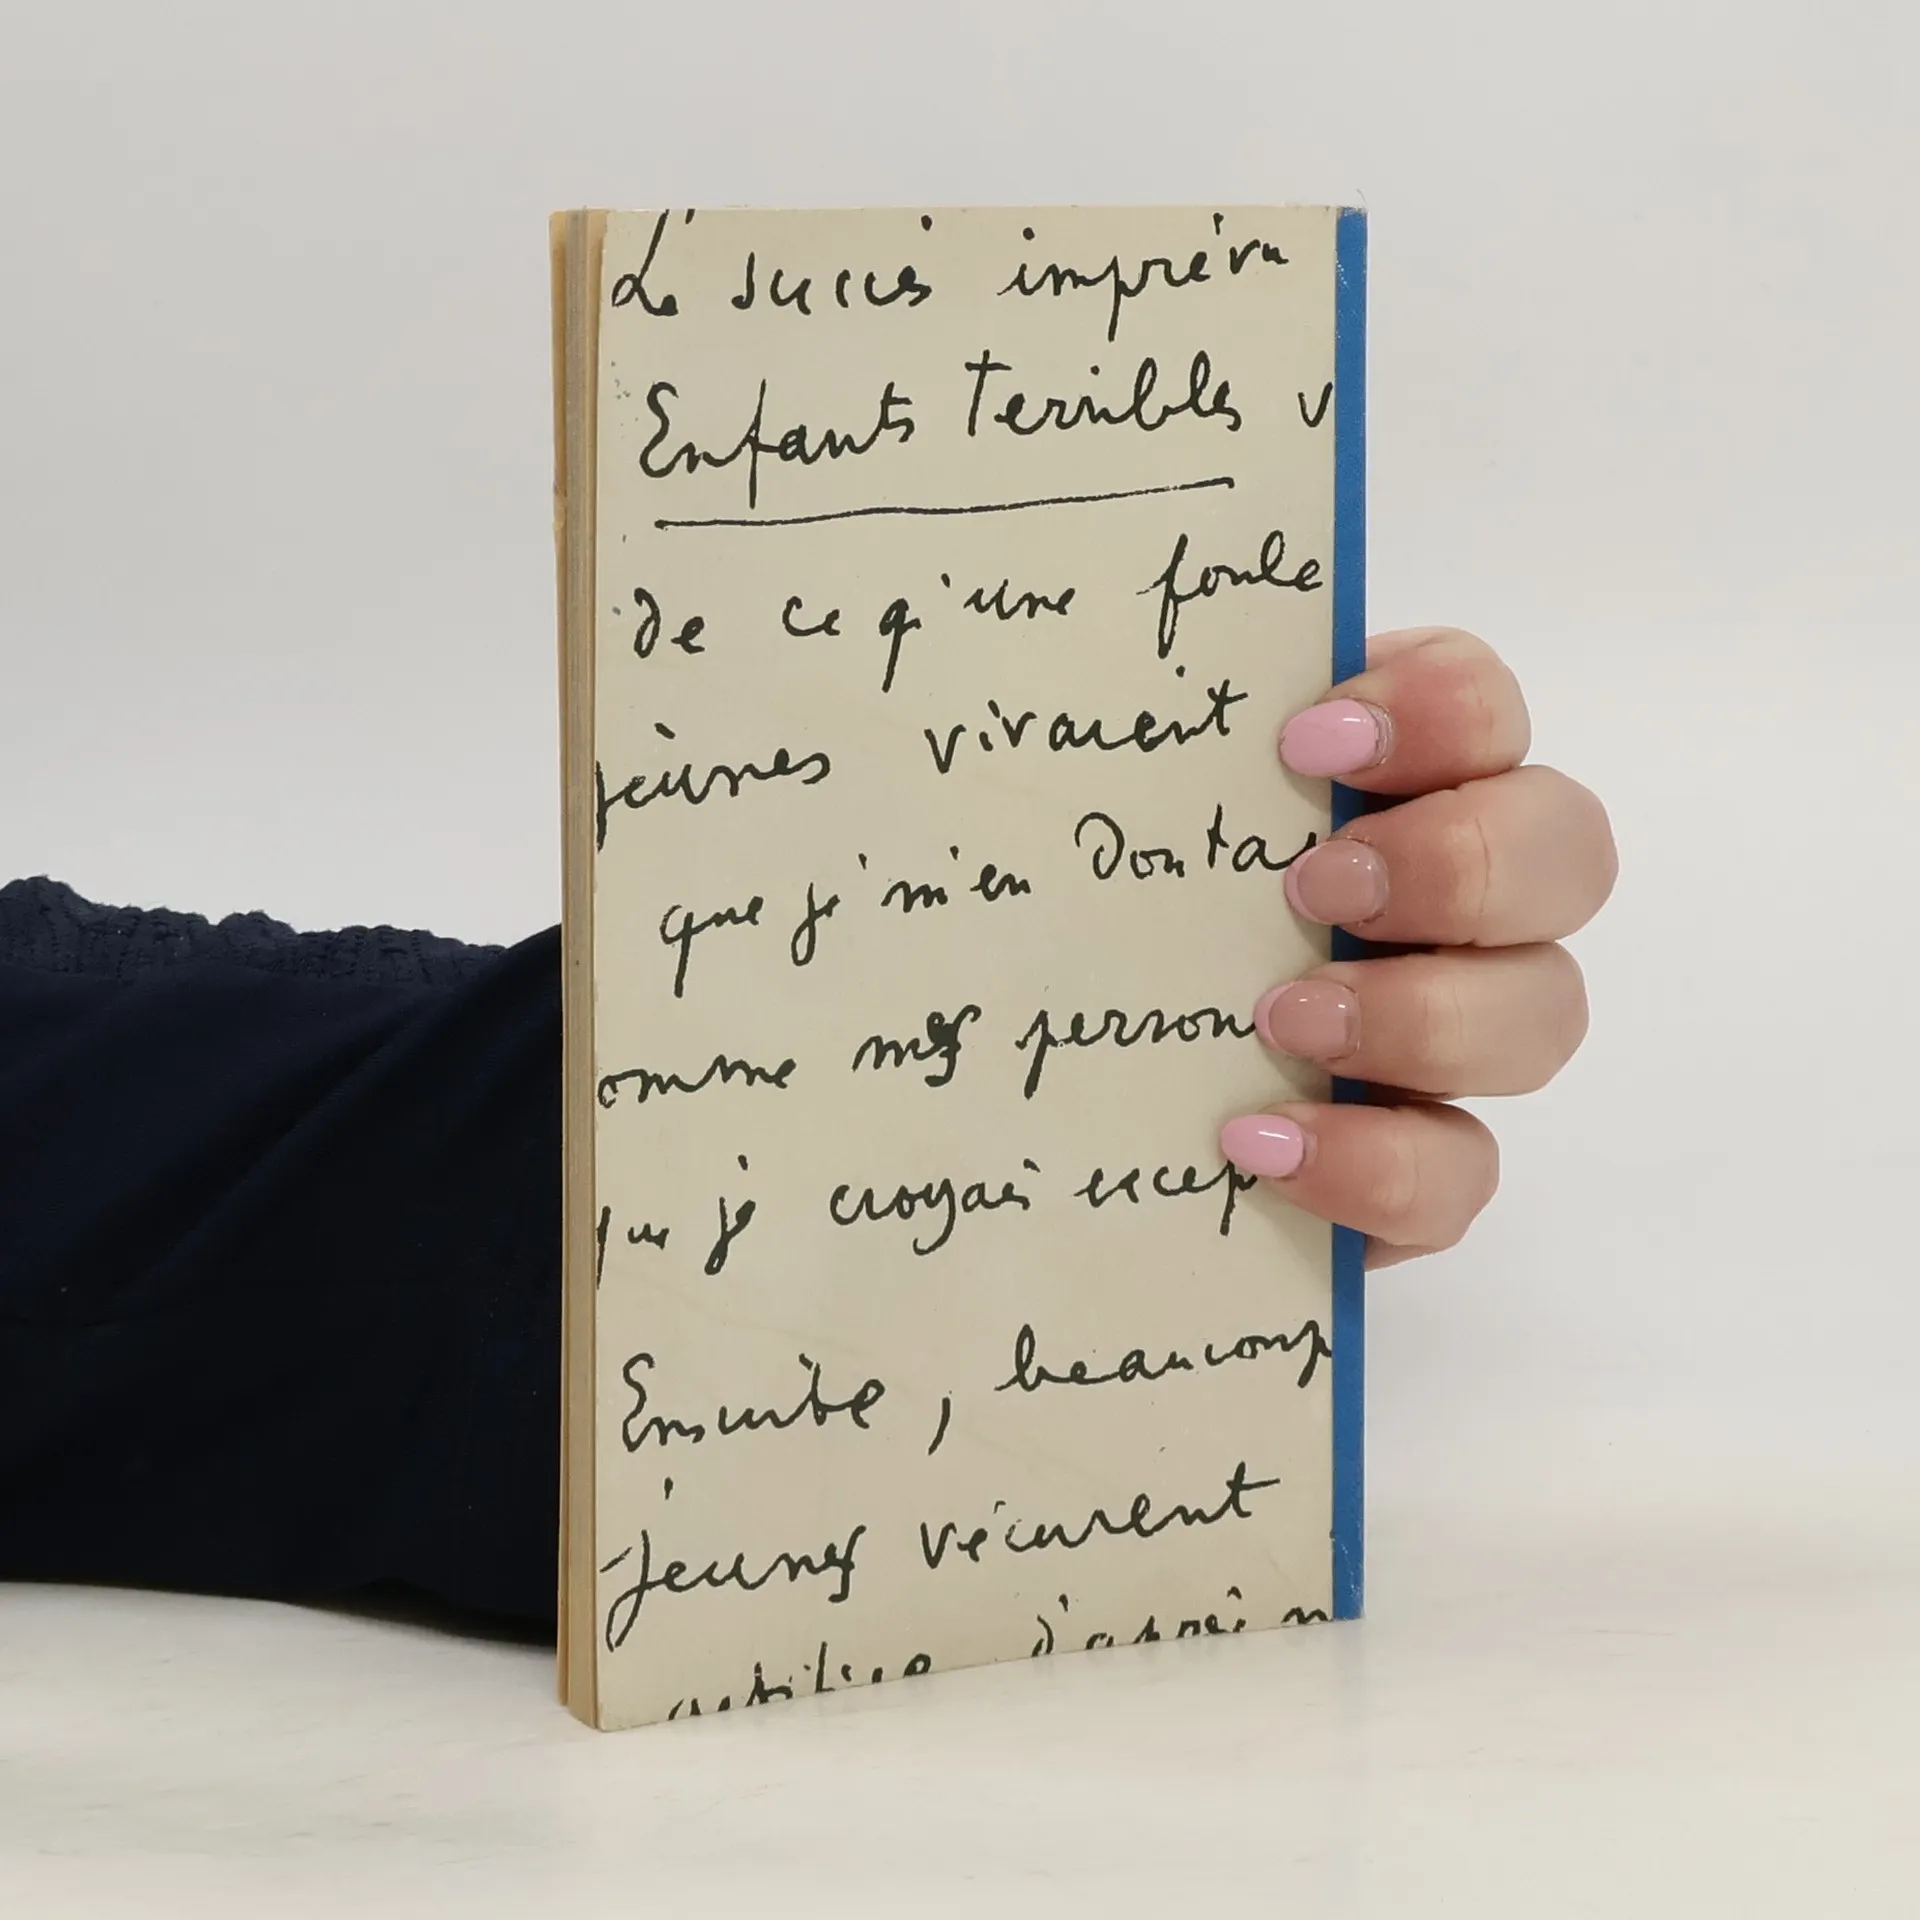 Le succès imprévu
Enfants Terribles v
de ce qu'une foule
jeunes vivaient
que je m'en douta
omme mes person
que je croyais excep
Ensuite, beaucoup
jeunes vécurent
artifice d'après n